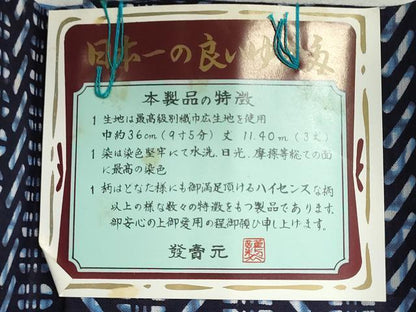 日本一の良いゆかた
本製品の特徴
1 生地は最高級別織巾広生地を使用
巾約36cm（9寸5分）丈 11.40m（3丈）
1 染は染色堅牢にて水洗、日光、摩擦等総ての面
に最高の染色
1 柄はどなた様にも御満足頂けるハイセンスな柄
以上の様な数々の特徴をもつ製品であります。
御安心の上御愛用の程御願ひ申し上げます。
発売元